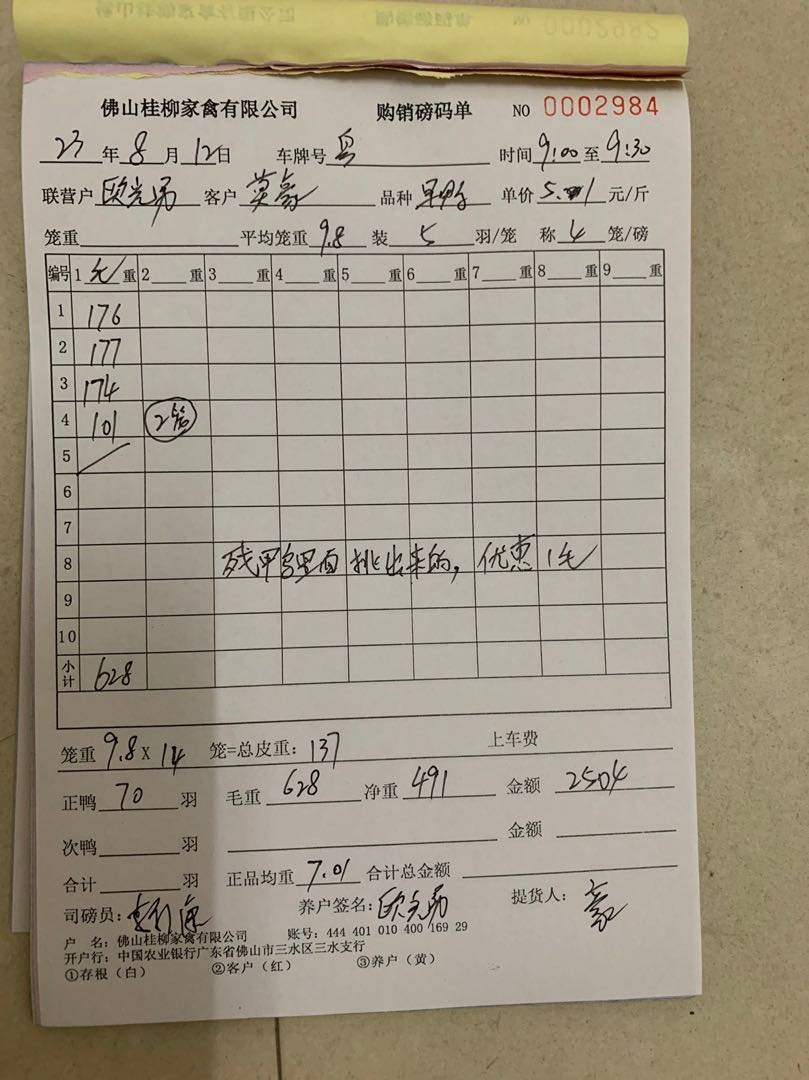 佛山桂柳家禽有限公司 购销磅码单 NO 0002984
23 年 8 月 12 日 车牌号 粤 时间 9:00 至 9:30
联营户 欧光勇 客户 莫豪 品种 单价 5.1 元/斤
笼重 平均笼重 9.8 装 5 羽/笼 称 4 笼/磅
编号 1 毛 重 2 重 3 重 4 重 5 重 6 重 7 重 8 重 9 重
1 176
2 177
3 174
4 101 2笼
5
6
7
8 残甲 里面 挑出来的，优惠1毛
9
10
小计 628
笼重 9.8 X 14 笼=总皮重： 137 上车费
正鸭 70 羽 毛重 628 净重 491 金额 2504
次鸭 羽 金额
合计 羽 正品均重 7.01 合计总金额
司磅员： 养户签名： 欧光勇 提货人： 豪
户 名：佛山桂柳家禽有限公司 账号：444 401 010 400 169 29
开户行：中国农业银行广东省佛山市三水区三水支行
①存根（白） ②客户（红） ③养户（黄）